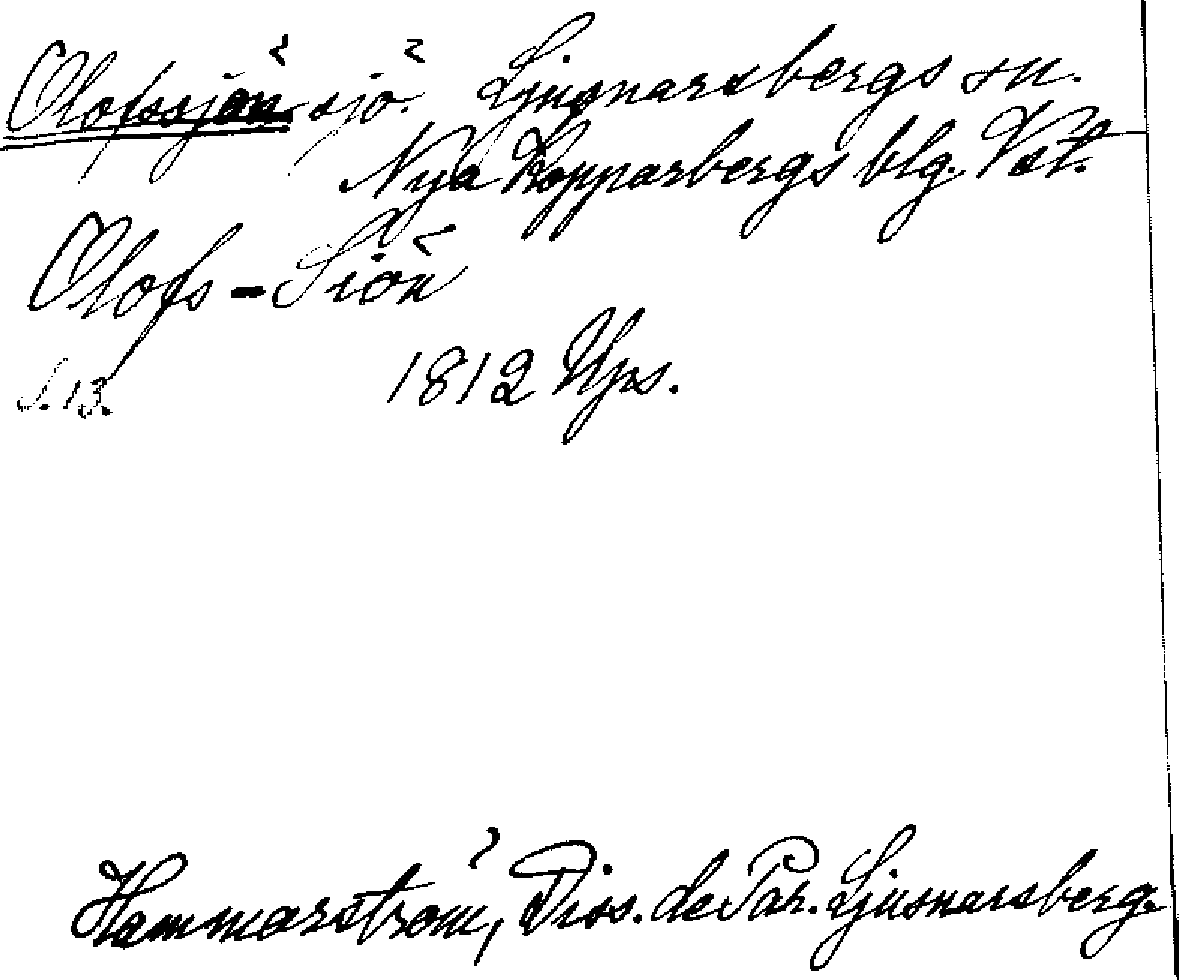 Olofssjön sjö. Ljusnarsbergs sn.
Nya Kopparbergs blg. Vst.
Olofs-Siön
s. 13. 1812 Ups.
Hammarström, Diss. de Par. Ljusnarsberg.